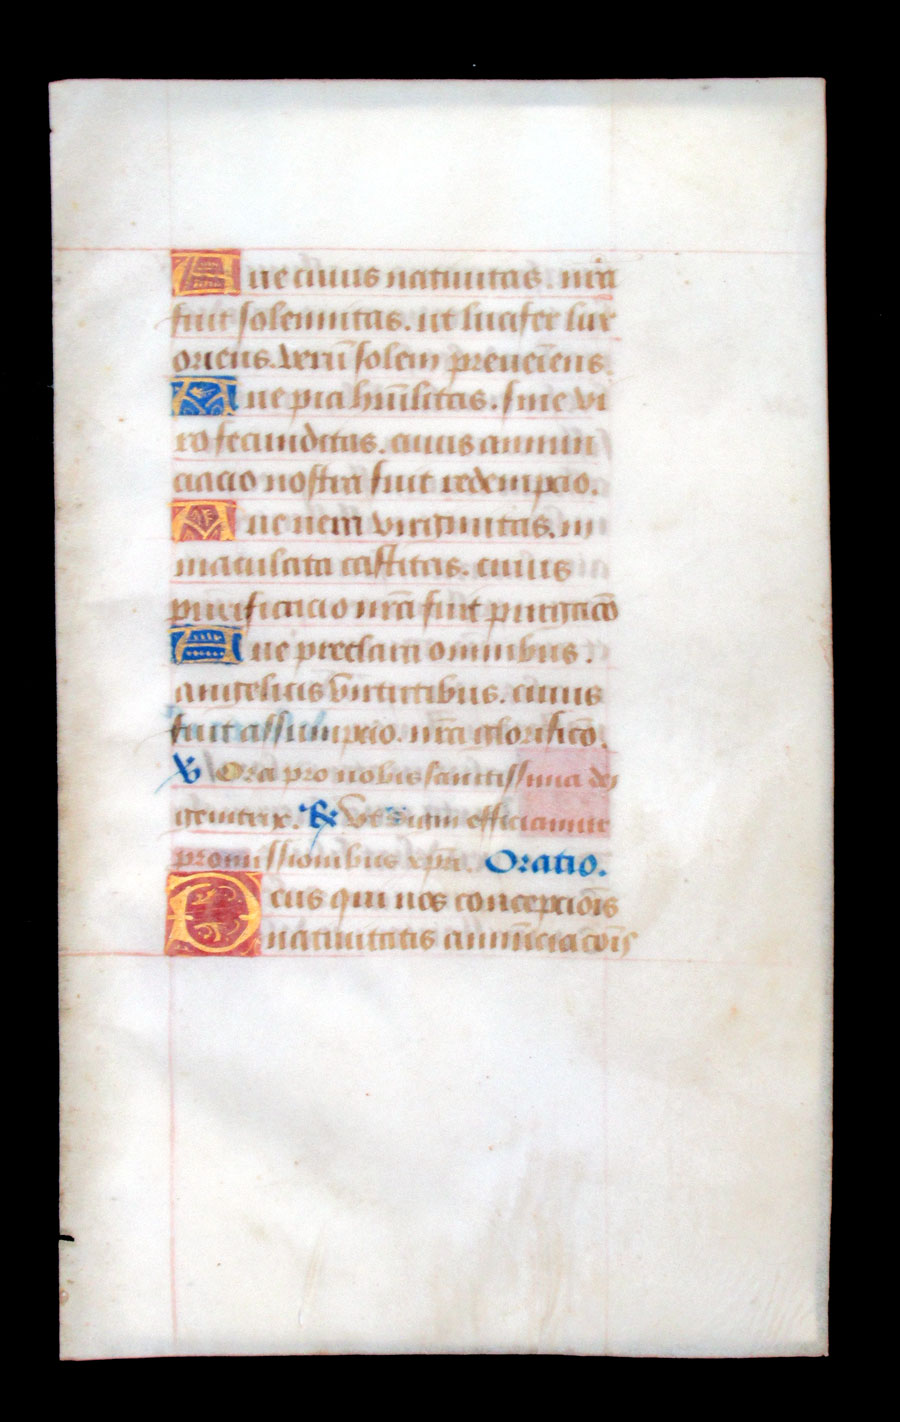 Aue cuius natiuitas. nr̄a
fuit solennitas. ut lucifer lux
oriens. verū solem preueīens.
Aue pia hūilitas. sine vi
ro fecunditas. cuius annun
ciacio nostra fuit redempcio.
Aue uera virginitas. in
maculata castitas. cuius
purificacio nr̄a fuit purgacō
Aue preclara omnibus.
angelicis virtutibus. cuius
fuit assumpcio. nr̄a glorificō.
℣ Ora pro nobis sanctissima dei
genitrix. ℟ Vt digni efficiamur
promissionibus xp̄i. Oratio.
Deus qui nos concepciōis
natiuitatis annūciacōnis